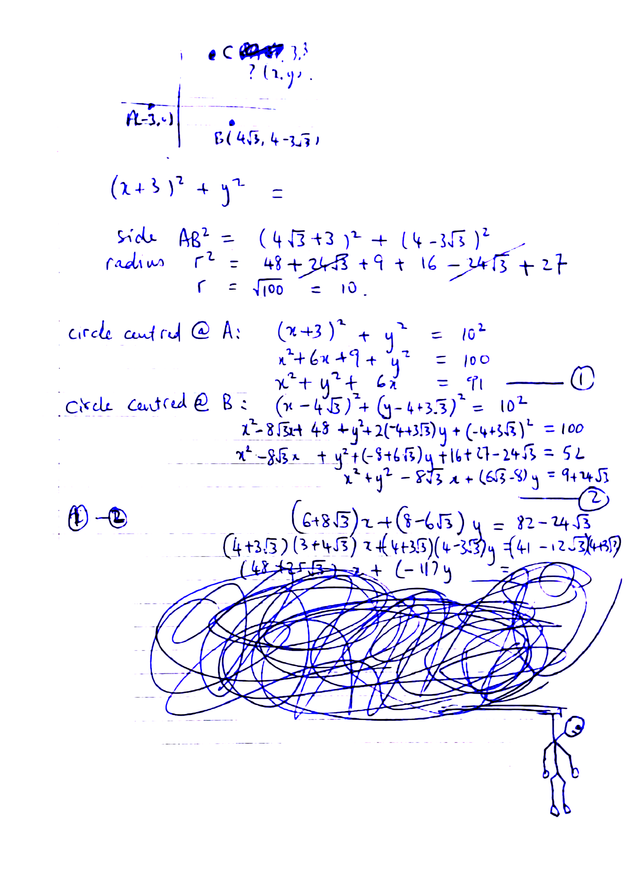 C 3,3
? (x,y).
A(-3,0)
B(4√3, 4-3√3)
(x+3)² + y² =
side AB² = (4√3+3)² + (4-3√3)²
radius r² = 48 + 24√3 + 9 + 16 - 24√3 + 27
r = √100 = 10.
circle centred @ A: (x+3)² + y² = 10²
x²+6x+9+y² = 100
x²+y²+ 6x = 91 ①
Circle centred @ B: (x-4√3)²+(y-4+3√3)² = 10²
x²-8√3x+ 48 +y²+2(-4+3√3)y+(-4+3√3)² = 100
x²-8√3x +y²+(-8+6√3)y+16+27-24√3 = 52
x²+y² -8√3x+(6√3-8)y = 9+24√3
②
① - ② (6+8√3)x+(8-6√3)y = 82-24√3
(4+3√3)(3+4√3)x+(4+3√3)(4-3√3)y=(41-12√3)(4+3√3)
(48+25√3)x + (-11)y =